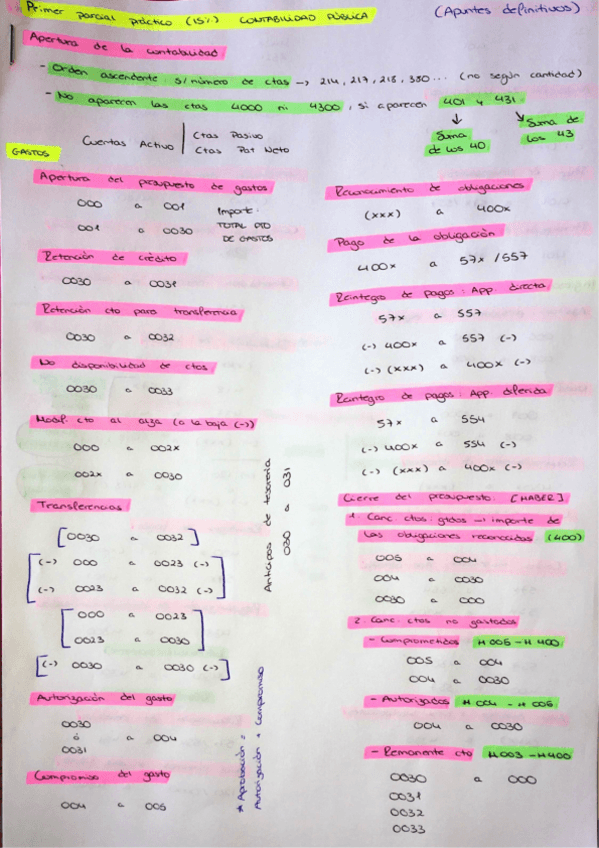 Primer parcial práctico (15%) CONTABILIDAD PÚBLICA (Apuntes definitivos)
Apertura de la contabilidad
- Orden ascendente s/número de ctas → 214, 217, 218, 380... (no según cantidad)
- No aparecen las ctas 4000 ni 4300, si aparecen 401 y 431.
Cuentas Activo | Ctas Pasivo
Ctas Pat Neto
Suma de los 40
Suma de los 43
GASTOS
Apertura del presupuesto de gastos
000 a 001
001 a 0030
Importe: TOTAL PTO DE GASTOS
Retención de crédito
0030 a 0031
Retención cto para transferencia
0030 a 0032
No disponibilidad de ctos
0030 a 0033
Modif. cto al alza (a la baja (-))
000 a 002x
002x a 0030
Transferencias
[0030 a 0032]
[(-) 000 a 0023 (-)
(-) 0023 a 0032 (-)]
[000 a 0023
0023 a 0030]
[(-) 0030 a 0030 (-)]
Autorización del gasto
0030
ó a 004
0031
Compromiso del gasto
004 a 005
Anticipos de tesorería
030 a 031
* Aprobación = Autorización + Compromiso
Reconocimiento de obligaciones
(xxx) a 400x
Pago de la obligación
400x a 57x /557
Reintegro de pagos: App. directa
57x a 557
(-) 400x a 557 (-)
(-) (xxx) a 400x (-)
Reintegro de pagos: App. diferida
57x a 554
(-) 400x a 554 (-)
(-) (xxx) a 400x (-)
Cierre del presupuesto: [HABER]
1. Canc ctos. gtdos → importe de
las obligaciones reconocidas (400)
005 a 004
004 a 0030
0030 a 000
2. Canc. ctos no gastados
- Comprometidos H 005 - H 400
005 a 004
004 a 0030
- Autorizados H 004 - H 005
004 a 0030
- Remanente cto H 003 - H 400
0030 a 000
0031
0032
0033